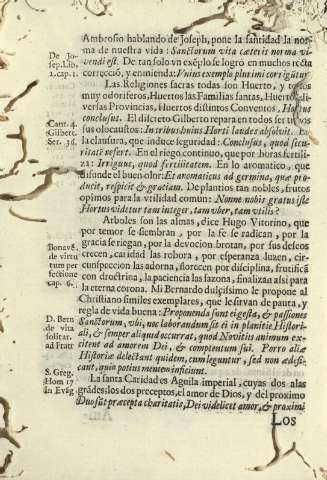 Ambrosio hablando de Joseph, pone la santidad la nor-
ma de nuestra vida: Sanctorum vita cæteris norma vi-
vendi est. De tan solo vn exéplo se logrò en muchos recta
correcciō, y enmienda: Vnius exemplo plurimi corrigūtur
De Jo-
sep. Lib.
1. cap. 1.
Las Religiones sacras todas son Huerto, y todos
muy odoriferos, Huertos las Familias santas, Huertos
versas Provincias, Huertos distintos Conventos, Hortus
conclusus. El discreto Gilberto repara en todos ser tres
sus olocaustos: In tribus huius Horti laudes absolvit. En
la clausura, que induce seguridad: Conclusus, quod secu-
ritatē refert. En el riego continuo, que por horas fertili-
za: Irriguus, quod fertilitatem. En lo aromatico, que
difunde el buen olor: Et aromaticus ad germina, quæ pro-
ducit, respicit & gratiam. De plantios tan nobles, frutos
opimos para la vtilidad comun: Nonne nobis gratus iste
Hortus videtur tam integer, tam vber, tam vtilis?
Cant. 4.
Gilbert.
Ser. 36.
Arboles son las almas, dice Hugo Vitorino, que
por temor se siembran, por la fè se radican, por la
gracia se riegan, por la devocion brotan, por sus deseos
crecen, caridad las robora, por esperanza luzen, cir-
cunspeccion las adorna, florecen por disciplina, frutifica
con doctrina, la paciencia las sazona, finaliza assi para
la eterna corona. Mi Bernardo dulcissimo le propone al
Christiano símiles exemplares, que le sirvan de pauta, y
regla de vida buena: Proponenda sunt ei gesta, & passiones
Sanctorum, vbi, nec laborandum sit ei in planitie Histori-
ali, & semper aliquid occurrat, quod Novitijs animum ex-
citent ad amorem Dei, & contemptum sui. Porro aliæ
Historiæ delectant quidem, cum leguntur, sed non ædifi-
cant, quin potius mentem inficiunt.
Bonavē.
de virtu
tum per
fectione
cap. 6.
D. Bern
de vita
solitar.
ad Fratr
La santa Caridad es Aguila imperial, cuyas dos alas
grādes, los dos preceptos, el amor de Dios, y del proximo
Duo sūt præcepta charitatis, Dei videlicet amor, & proximi
S. Greg.
Hom 17
in Evāg
Los